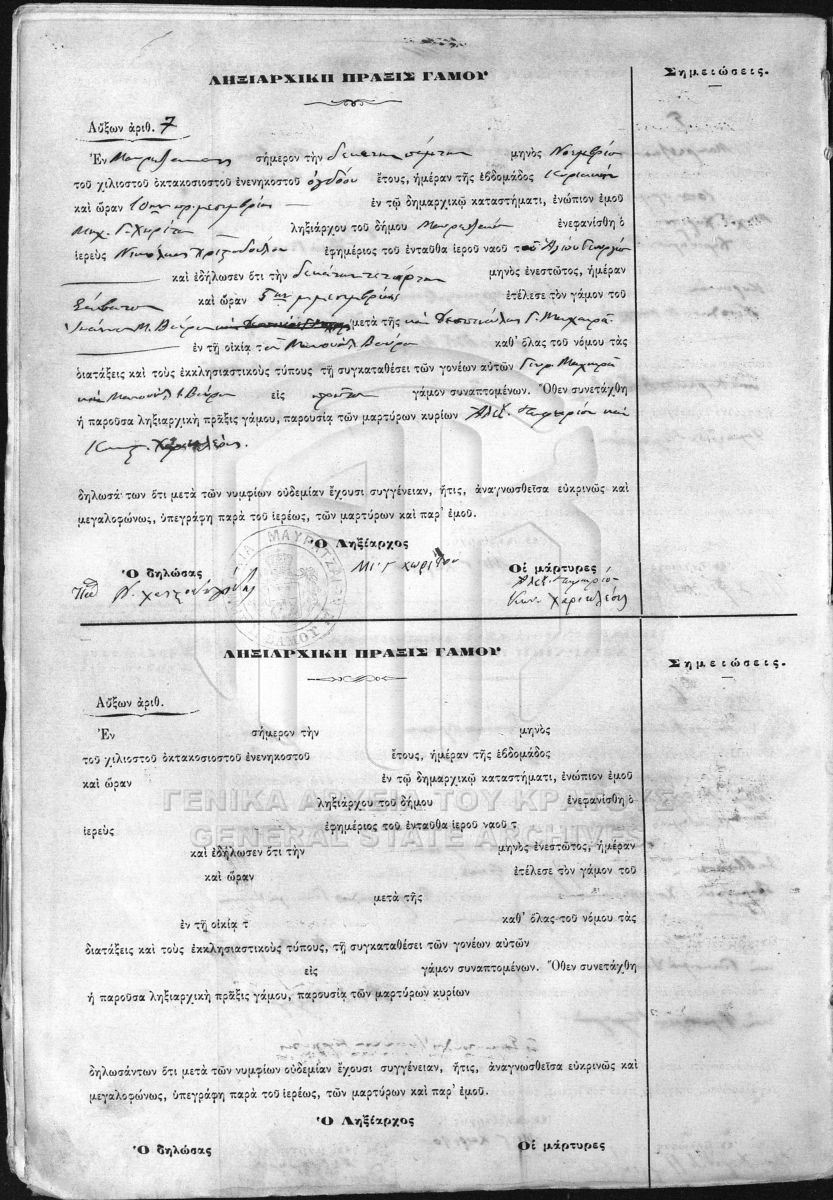 ΛΗΞΙΑΡΧΙΚΗ ΠΡΑΞΙΣ ΓΑΜΟΥ
Σημειώσεις.
Αὔξων ἀριθ. 7
Ἐν σήμερον τὴν δεκάτην πέμπτην μηνὸς Νοεμβρίου
τοῦ χιλιοστοῦ ὀκτακοσιοστοῦ ἐνενηκοστοῦ ὀγδόου ἔτους, ἡμέραν τῆς ἑβδομάδος Κυριακὴν
καὶ ὥραν 10ην π.μεσημβρίας ἐν τῷ δημαρχικῷ καταστήματι, ἐνώπιον ἐμοῦ
Μιχ. Γ. Χωρίτου ληξιάρχου τοῦ δήμου ἐνεφανίσθη ὁ
ἱερεὺς Νικόλαος ἐφημέριος τοῦ ἐνταῦθα ἱεροῦ ναοῦ τοῦ Ἁγίου Γεωργίου
καὶ ἐδήλωσεν ὅτι τὴν δεκάτην τετάρτην μηνὸς ἐνεστῶτος, ἡμέραν
Σάββατον καὶ ὥραν 5ην μ.μεσημβρίας ἐτέλεσε τὸν γάμον τοῦ
Ἰωάννου Μ. Βούρου μετὰ τῆς Δεσποινούλας Γ. Μαχαιρᾶ
ἐν τῇ οἰκίᾳ τοῦ Μανουὴλ Βούρου καθ' ὅλας τοῦ νόμου τὰς
διατάξεις καὶ τοὺς ἐκκλησιαστικοὺς τύπους τῇ συγκαταθέσει τῶν γονέων αὐτῶν Γεωρ. Μαχαιρᾶ
καὶ Μανουὴλ Βούρου εἰς πρῶτον γάμον συναπτομένων. Ὅθεν συνετάχθη
ἡ παροῦσα ληξιαρχικὴ πρᾶξις γάμου, παρουσίᾳ τῶν μαρτύρων κυρίων Ἀλεξ. καὶ
Κωνσ.
δηλωσάντων ὅτι μετὰ τῶν νυμφίων οὐδεμίαν ἔχουσι συγγένειαν, ἥτις, ἀναγνωσθεῖσα εὐκρινῶς καὶ
μεγαλοφώνως, ὑπεγράφη παρὰ τοῦ ἱερέως, τῶν μαρτύρων καὶ παρ' ἐμοῦ.
Ὁ Ληξίαρχος
Ὁ δηλώσας
Μι. Γ Χωρίτου
Οἱ μάρτυρες
Ἀλεξ.
Κων.
ΛΗΞΙΑΡΧΙΚΗ ΠΡΑΞΙΣ ΓΑΜΟΥ
Σημειώσεις.
Αὔξων ἀριθ.
Ἐν σήμερον τὴν μηνὸς
τοῦ χιλιοστοῦ ὀκτακοσιοστοῦ ἐνενηκοστοῦ ἔτους, ἡμέραν τῆς ἑβδομάδος
καὶ ὥραν ἐν τῷ δημαρχικῷ καταστήματι, ἐνώπιον ἐμοῦ
ΓΕΝΙΚΑ ΑΡΧΕΙΑ ΤΟΥ ΚΡΑΤΟΥΣ
ληξιάρχου τοῦ δήμου ἐνεφανίσθη ὁ
ἱερεὺς ἐφημέριος τοῦ ἐνταῦθα ἱεροῦ ναοῦ τ
GENERAL STATE ARCHIVES
καὶ ἐδήλωσεν ὅτι τὴν μηνὸς ἐνεστῶτος, ἡμέραν
καὶ ὥραν ἐτέλεσε τὸν γάμον τοῦ
μετὰ τῆς
ἐν τῇ οἰκίᾳ τ καθ' ὅλας τοῦ νόμου τὰς
διατάξεις καὶ τοὺς ἐκκλησιαστικοὺς τύπους, τῇ συγκαταθέσει τῶν γονέων αὐτῶν
εἰς γάμον συναπτομένων. Ὅθεν συνετάχθη
ἡ παροῦσα ληξιαρχικὴ πρᾶξις γάμου, παρουσίᾳ τῶν μαρτύρων κυρίων
δηλωσάντων ὅτι μετὰ τῶν νυμφίων οὐδεμίαν ἔχουσι συγγένειαν, ἥτις, ἀναγνωσθεῖσα εὐκρινῶς καὶ
μεγαλοφώνως, ὑπεγράφη παρὰ τοῦ ἱερέως, τῶν μαρτύρων καὶ παρ' ἐμοῦ.
Ὁ Ληξίαρχος
Ὁ δηλώσας
Οἱ μάρτυρες